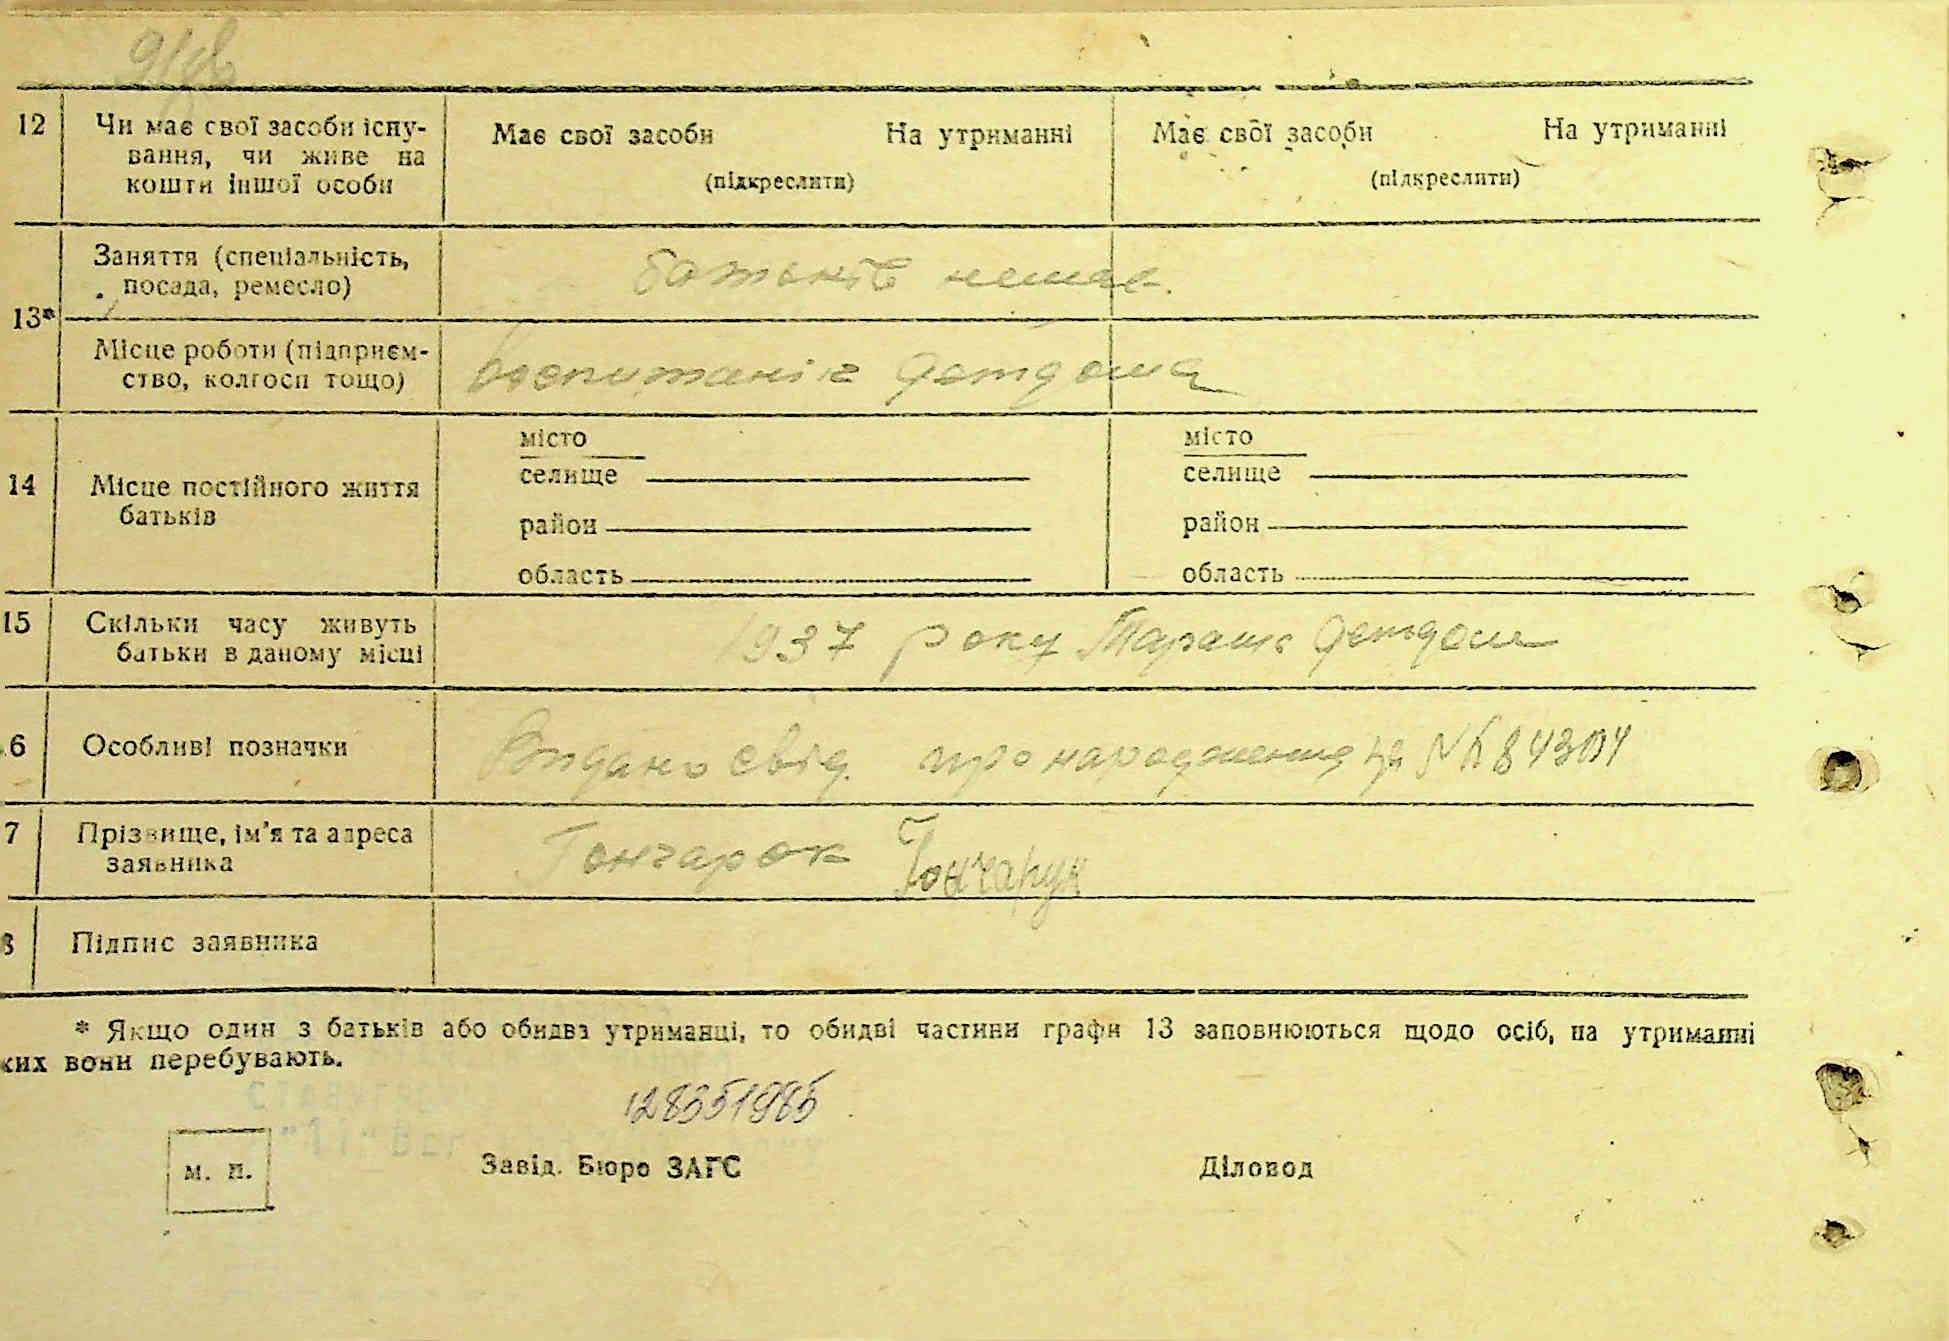 12 Чи має свої засоби існу-
вання, чи живе на
кошти іншої особи
Має свої засоби На утриманні
(підкреслити)
Має свої засоби На утриманні
(підкреслити)
13*
Заняття (спеціальність,
посада, ремесло)
батьків немає.
Місце роботи (підприєм-
ство, колгосп тощо)
воспитанік детдома
14 Місце постійного життя
батьків
місто
селище
район
область
місто
селище
район
область
15 Скільки часу живуть
батьки в даному місці
1937 року Тараш. детдом
6 Особливі позначки
Видано свід. про народження
7 Прізвище, ім'я та адреса
заявника
Гончарок Гончарук
8 Підпис заявника
* Якщо один з батьків або обидва утриманці, то обидві частини графи 13 заповнюються щодо осіб, на утриманні
ких вони перебувають.
м. п.
Завід. Бюро ЗАГС
Діловод